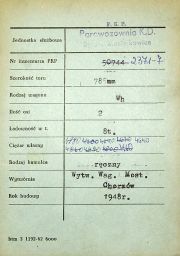 P. K. P.
Jednostka służbowa Parowozownia K.D.
Nr inwentarza PKP 50744 2371-7
Szerokość toru 785mm
Rodzaj wagonu Wh
Ilość osi 2
Ładowność w t. 8t.
Ciężar własny
Rodzaj hamulca ręczny
Wytwórnia Wytw. Wag. Most.
Chorzów
Rok budowy 1948r.